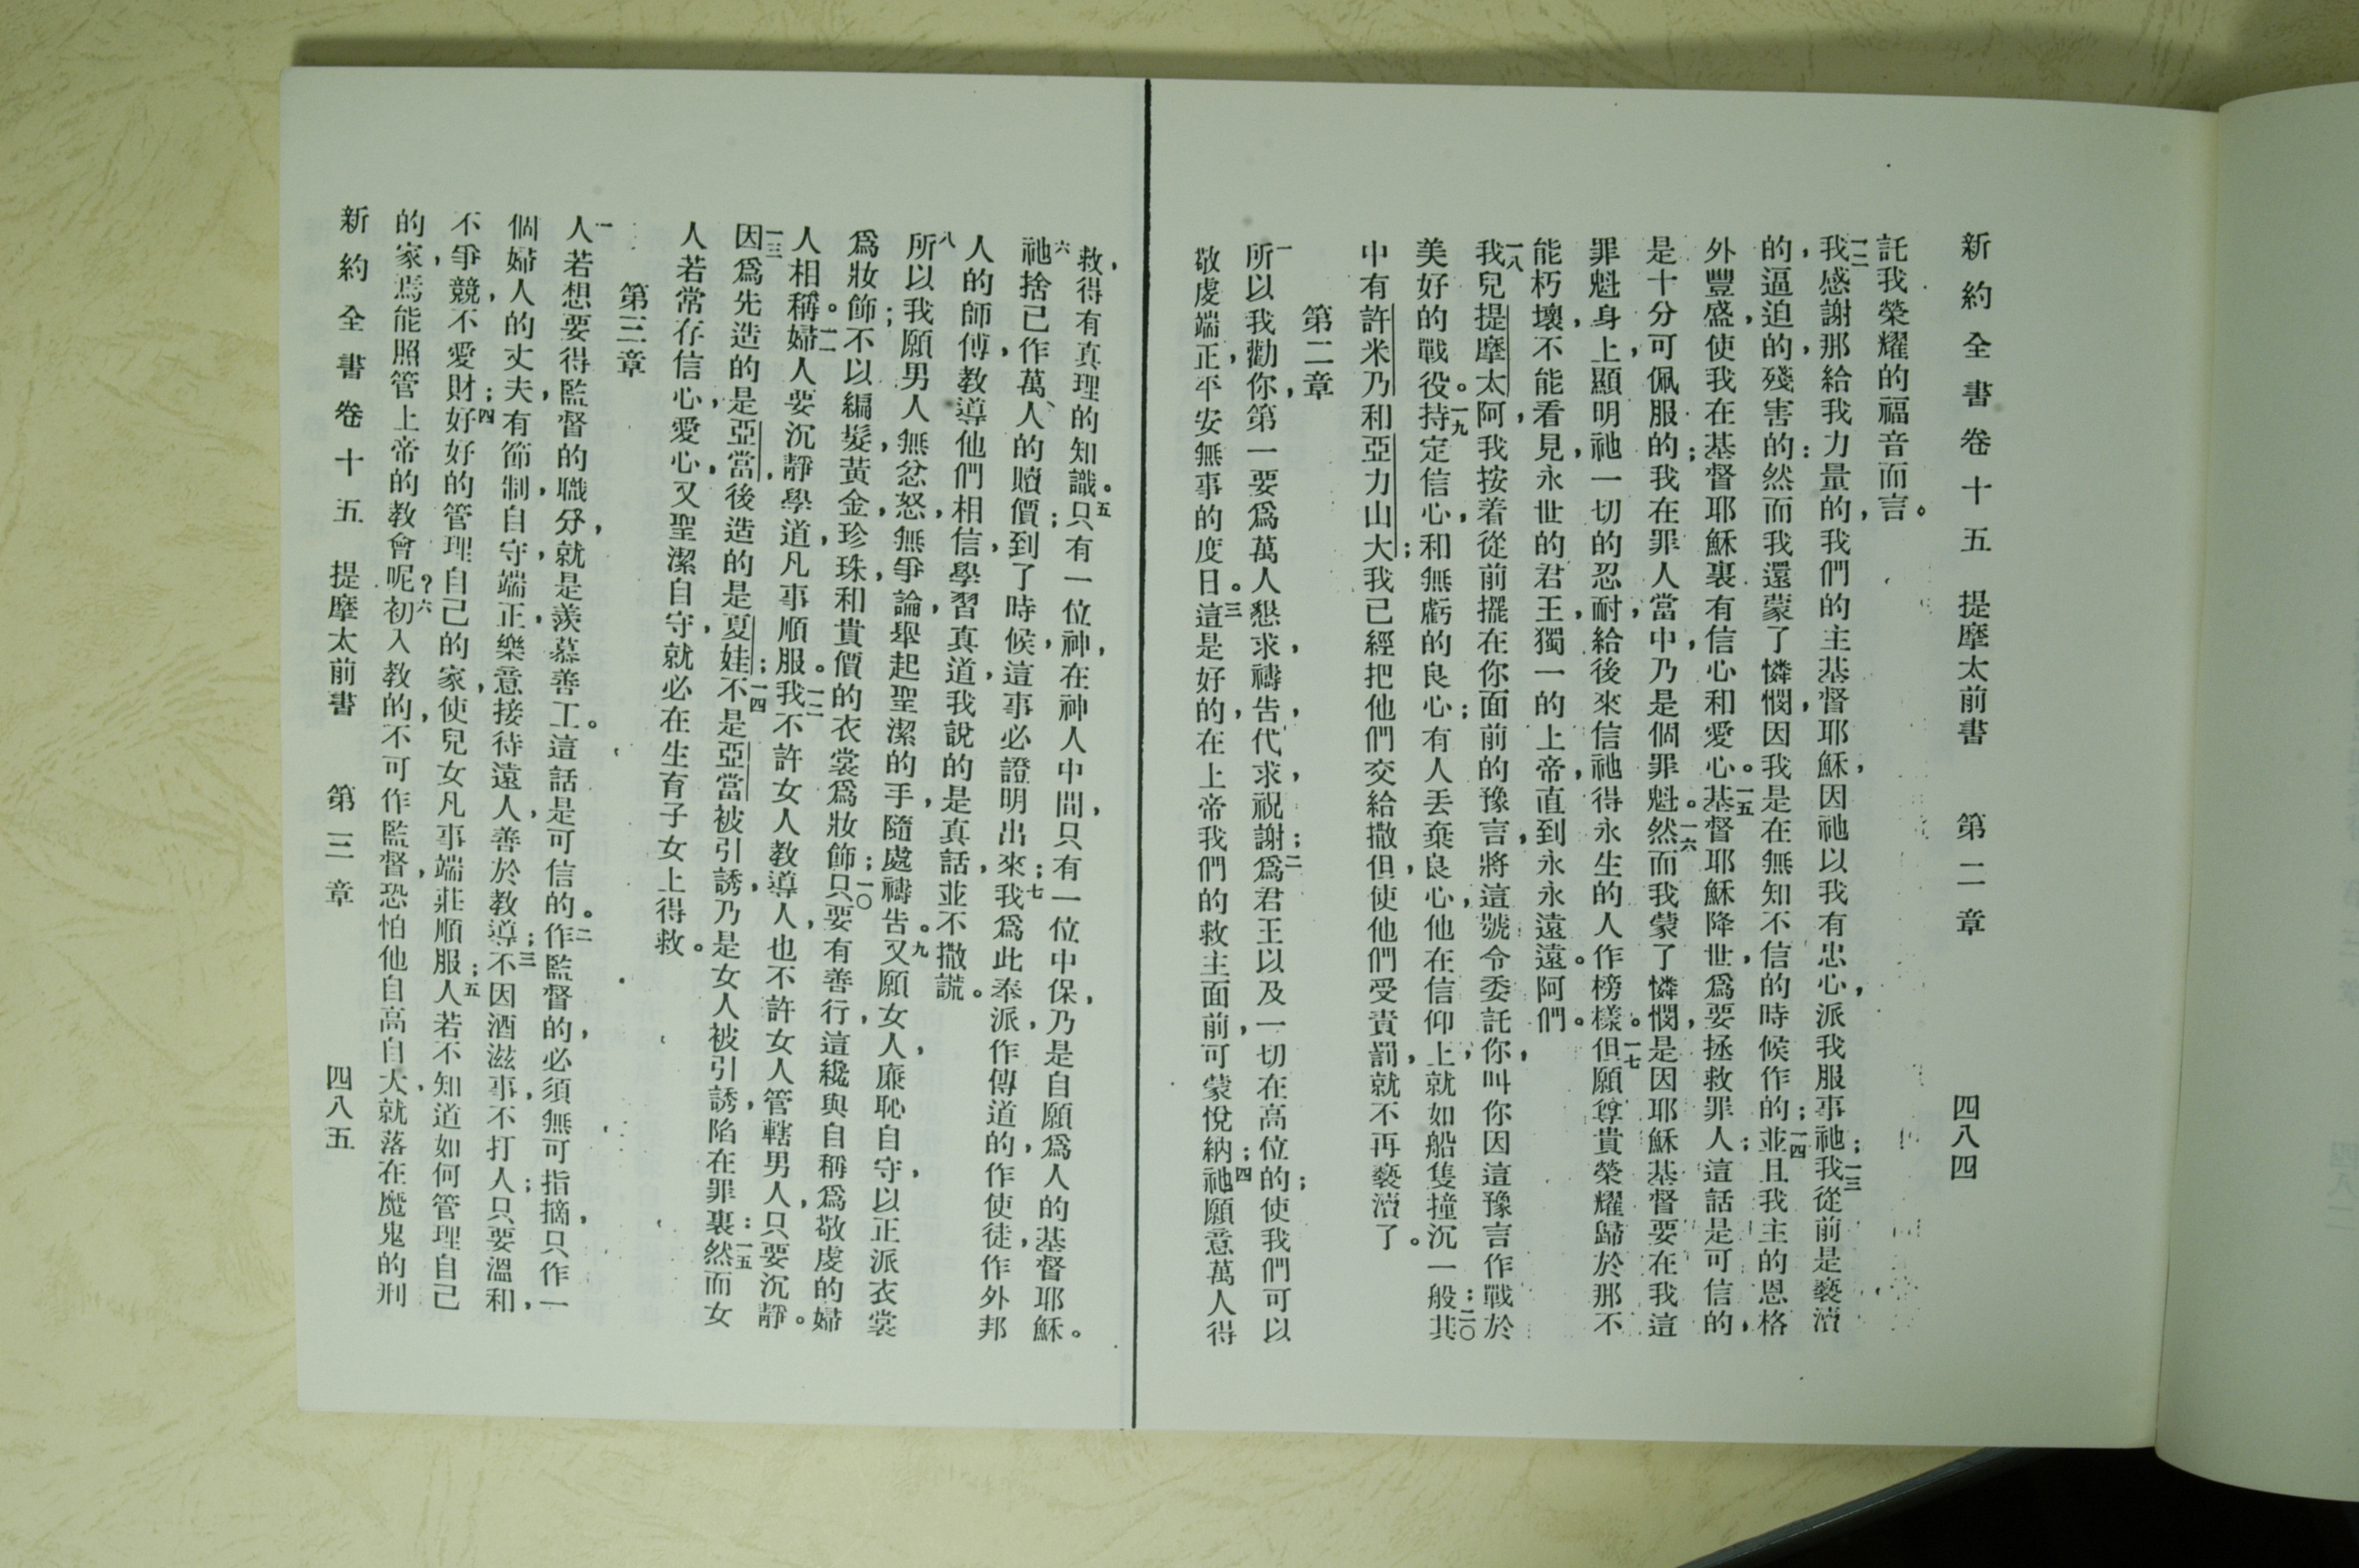 新約全書卷十五　提摩太前書　第二章　四八四
託我榮耀的福音而言。
一二我感謝那給我力量的，我們的主基督耶穌，因祂以我有忠心，派我服事祂；一三我從前是褻瀆
的，逼迫的，殘害的：然而我還蒙了憐憫，因我是在無知不信的時候作的；一四並且我主的恩格
外豐盛，使我在基督耶穌裏有信心和愛心。一五基督耶穌降世，爲要拯救罪人；這話是可信的，
是十分可佩服的；我在罪人當中，乃是個罪魁。一六然而我蒙了憐憫，是因耶穌基督要在我這
罪魁身上，顯明祂一切的忍耐，給後來信祂得永生的人作榜樣。一七但願尊貴榮耀歸於那不
能朽壞，不能看見，永世的君王，獨一的上帝，直到永永遠遠。阿們。
一八我兒提摩太阿，我按着從前擺在你面前的豫言，將這號令委託你，叫你因這豫言作戰於
美好的戰役。一九持定信心，和無虧的良心；有人丢棄良心，他在信仰上，就如船隻撞沉一般：二〇其
中有許米乃和亞力山大；我已經把他們交給撒但，使他們受責罰，就不再褻瀆了。
第二章
一所以我勸你，第一要爲萬人懇求，禱告，代求，祝謝；二爲君王以及一切在高位的；使我們可以
敬虔端正，平安無事的度日。三這是好的，在上帝我們的救主面前，可蒙悅納；四祂願意萬人得
救，得有真理的知識。五只有一位神，在神人中間，只有一位中保，乃是自願爲人的基督耶穌。
六祂捨己作萬人的贖價；到了時候，這事必證明出來；七我爲此奉派，作傳道的，作使徒，作外邦
人的師傅，教導他們相信，學習真道，我說的是真話，並不撒謊。
八所以我願男人，無忿怒，無爭論，舉起聖潔的手，隨處禱告。九又願女人，廉恥自守，以正派衣裳
爲妝飾；不以編髮，黃金，珍珠，和貴價的衣裳爲妝飾；一〇只要有善行，這纔與自稱爲敬虔的婦
人相稱。一一婦人要沉靜學道，凡事順服。一二我不許女人教導人，也不許女人管轄男人，只要沉靜。
一三因爲先造的是亞當，後造的是夏娃；一四不是亞當被引誘，乃是女人被引誘，陷在罪裏：一五然而女
人若常存信心，愛心，又聖潔自守，就必在生育子女上得救。
第三章
一人若想要得監督的職分，就是羨慕善工。這話是可信的。二作監督的，必須無可指摘，只作一
個婦人的丈夫，有節制，自守，端正，樂意接待遠人，善於教導；三不因酒滋事，不打人；只要溫和，
不爭競，不愛財；四好好的管理自己的家，使兒女凡事端莊順服；五人若不知道如何管理自己
的家，焉能照管上帝的教會呢？六初入教的，不可作監督，恐怕他自高自大，就落在魔鬼的刑
新約全書卷十五　提摩太前書　第三章　四八五